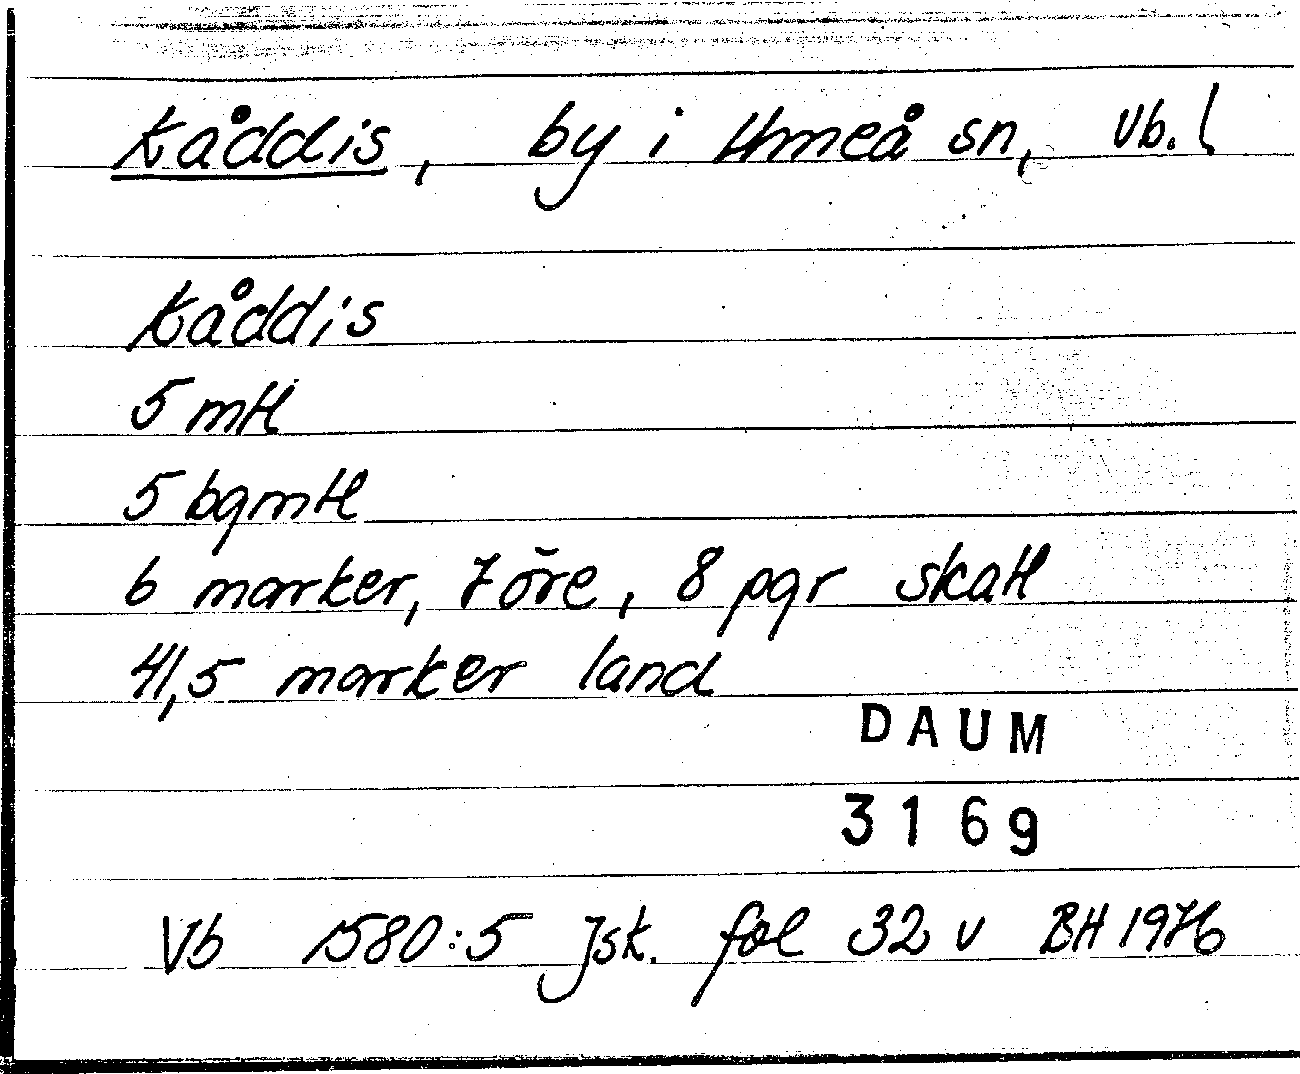 Kåddis, by i Umeå sn, Vb. l
Kåddis
5 mtl
5 bgmtl
6 marker, 7 öre, 8 pgr skatt
41,5 marker land
DAUM
3169
Vb 1580:5 Jsk. fol 32 v BH 1976